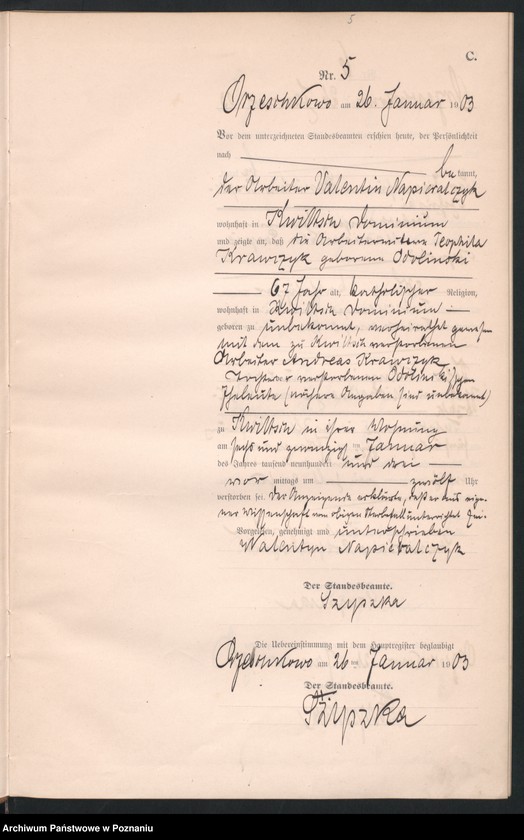 5
C.
Nr. 5
Orzeschkowo am 26. Januar 1903
Vor dem unterzeichneten Standesbeamten erschien heute, der Persönlichkeit
nach be kannt,
der Arbeiter Valentin Napieralczyk
wohnhaft in Kwiltsch Dominium
und zeigte an, daß die Arbeiterwitwe Teophila
Krawczyk geborene Odolinski
67 Jahr alt, katholischer Religion,
wohnhaft in Kwiltsch Dominium
geboren zu unbekannt, verheirathet gewesen
mit dem zu Kwiltsch verstorbenen
Arbeiter Andreas Krawczyk
Tochter der verstorbenen Odolinski'schen
Eheleute (nähere Angaben sind unbekannt)
zu Kwiltsch in ihrer Wohnung
am sechs und zwanzigsten Januar
des Jahres tausend neunhundert und drei
vor mittags um zwölf Uhr
verstorben sei. Der Anzeigende erklärte, daß er aus eige-
ner Wissenschaft vom obigen Sterbefall unterrichtet sei.
Vorgelesen, genehmigt und unterschrieben
Walentyn Napieralczyk
Der Standesbeamte.
Szyszka
Die Uebereinstimmung mit dem Hauptregister beglaubigt
Orzeschkowo am 26ten Januar 1903
Der Standesbeamte.
Szyszka
Archiwum Państwowe w Poznaniu